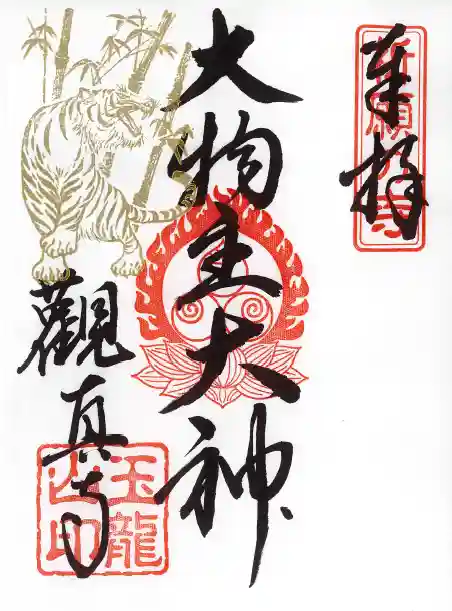 奉拝
祈願
大物主大神
觀真寺
玉龍
山印